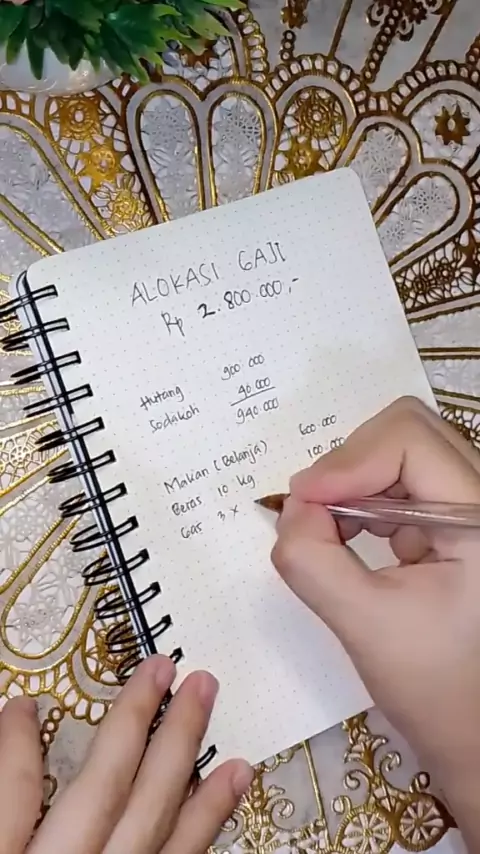 ALOKASI GAJI
Rp 2.800.000,-
Hutang 900 000
Sodakoh 40 000
940 000
Makan (Belanja) 600 000
Beras 10 kg 100 000
Gas 3 x